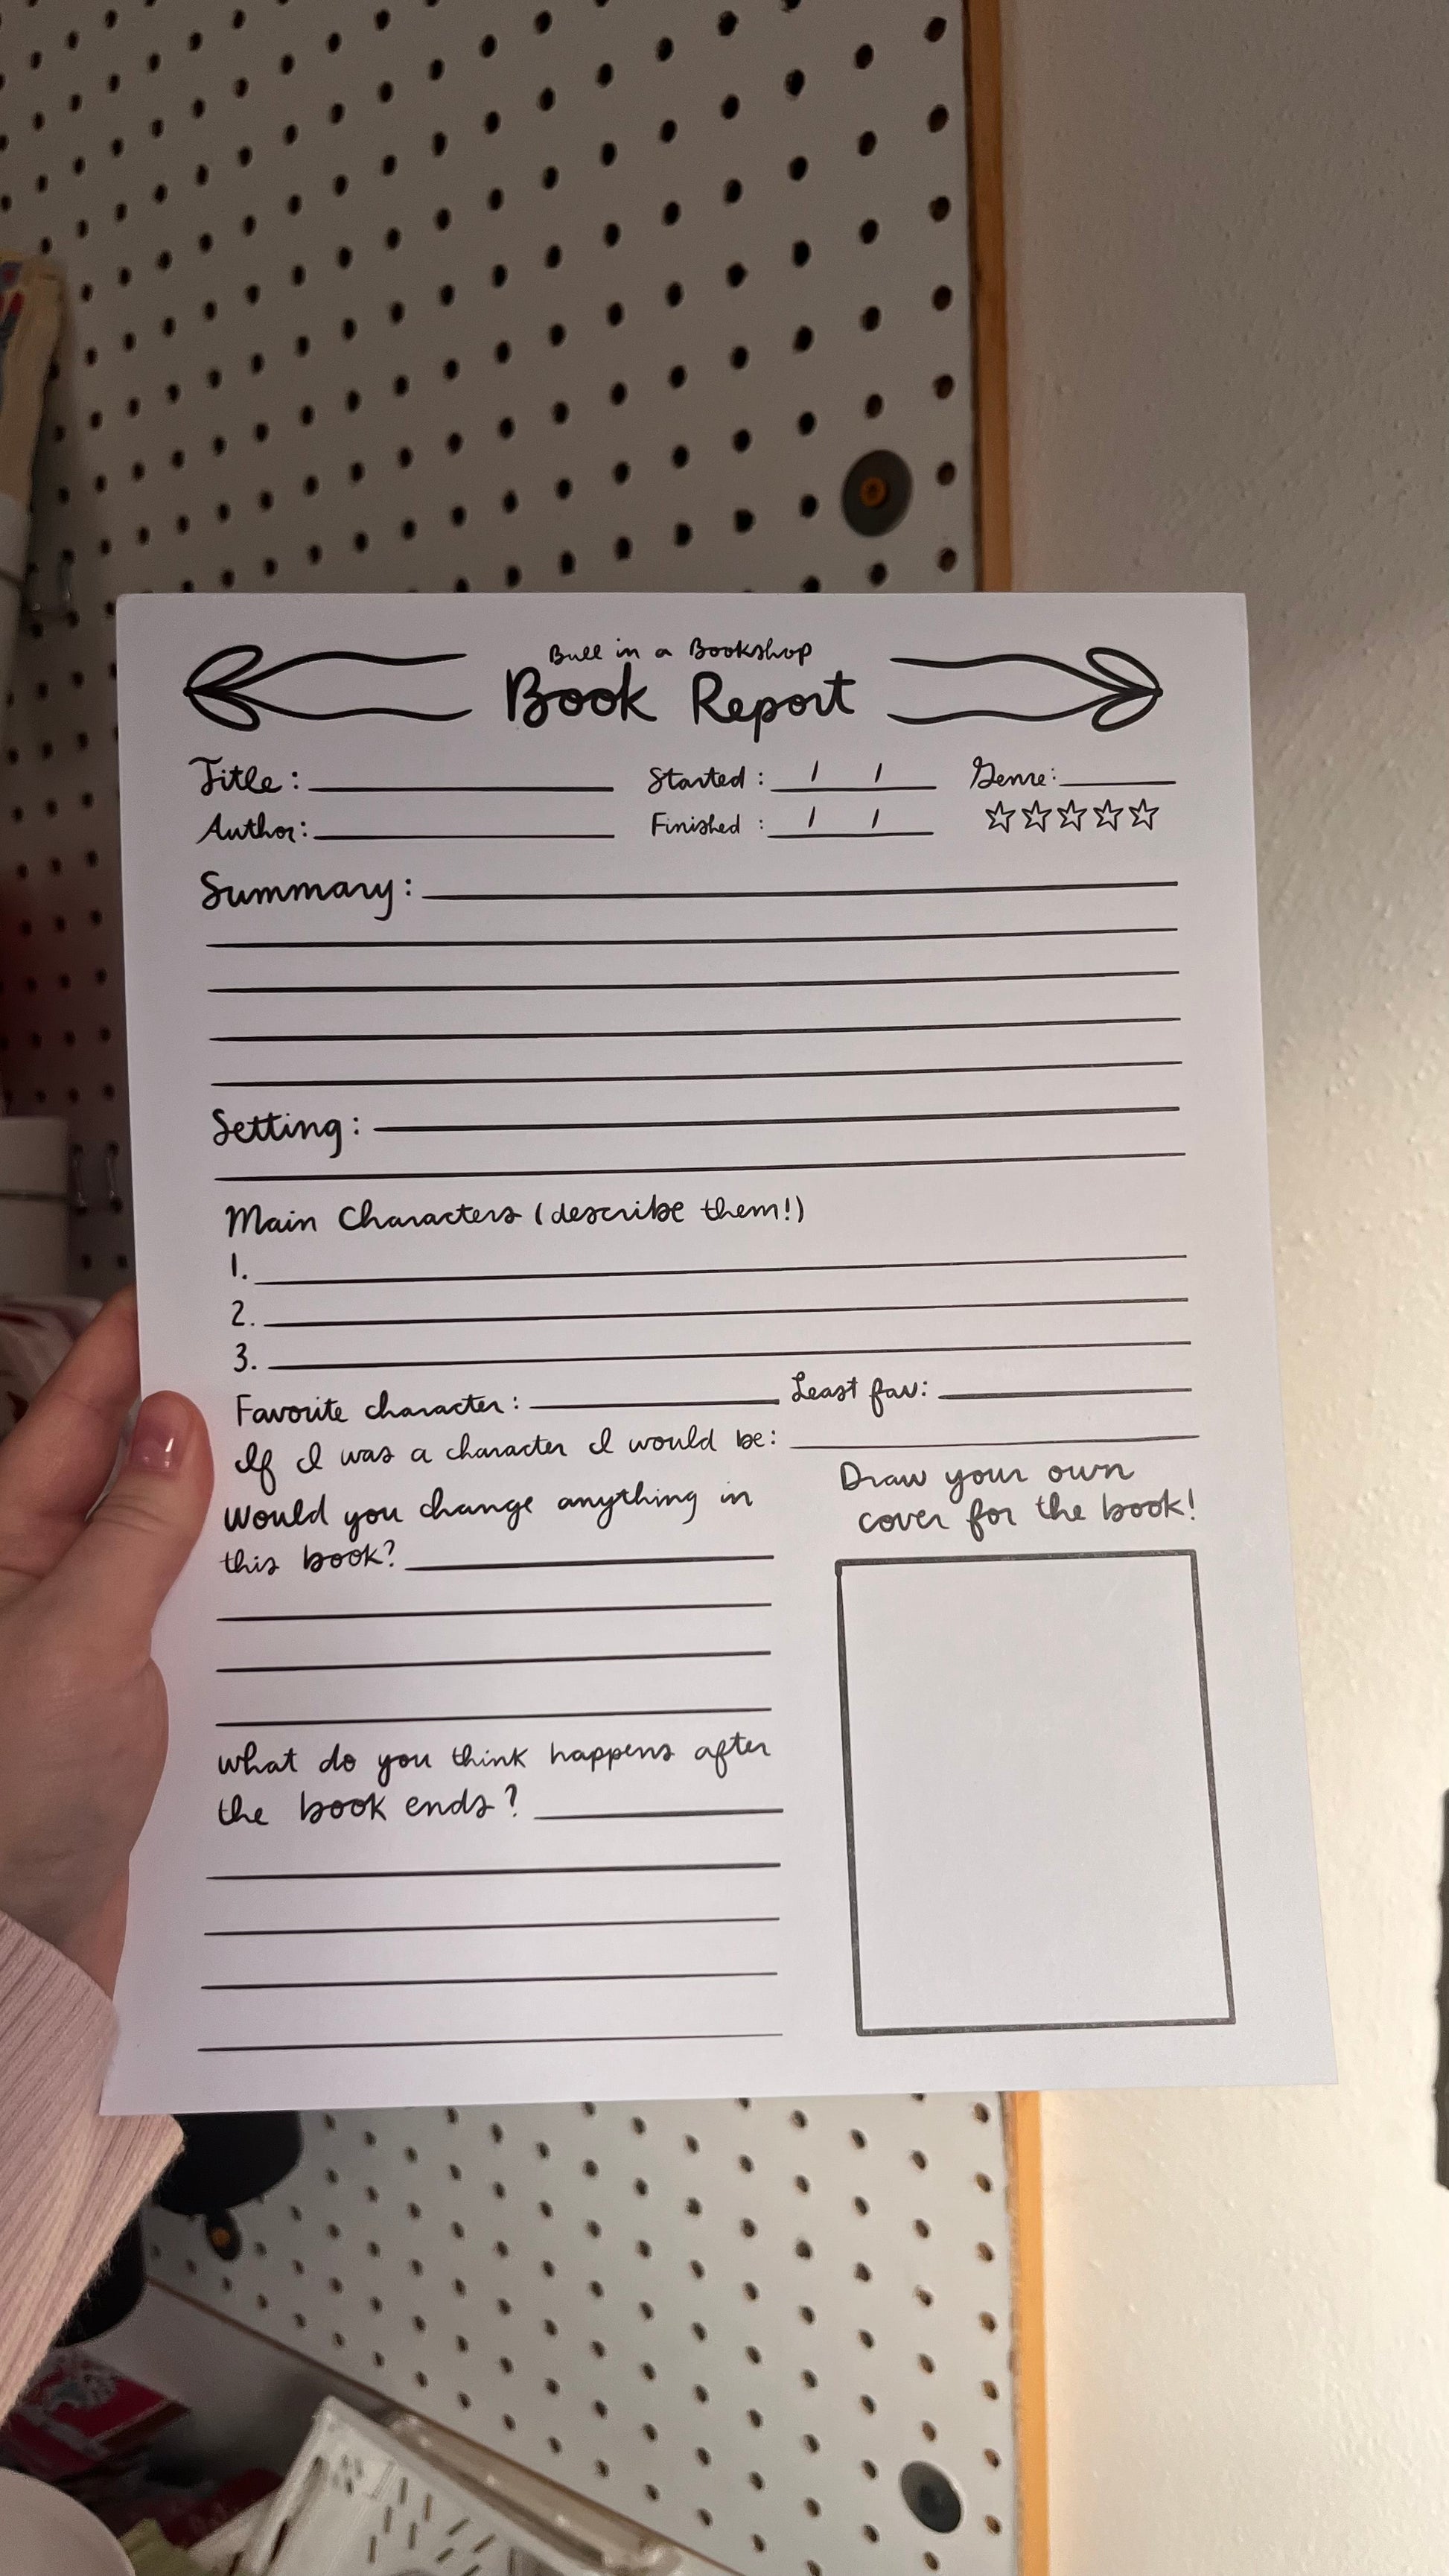 Bull in a Bookshop
Book Report
Title: Started: / / Genre:
Author: Finished: / /
Summary:
Setting:
Main Characters (describe them!)
1.
2.
3.
Favorite character: Least fav:
If I was a character I would be:
Would you change anything in
this book?
Draw your own
cover for the book!
What do you think happens after
the book ends?